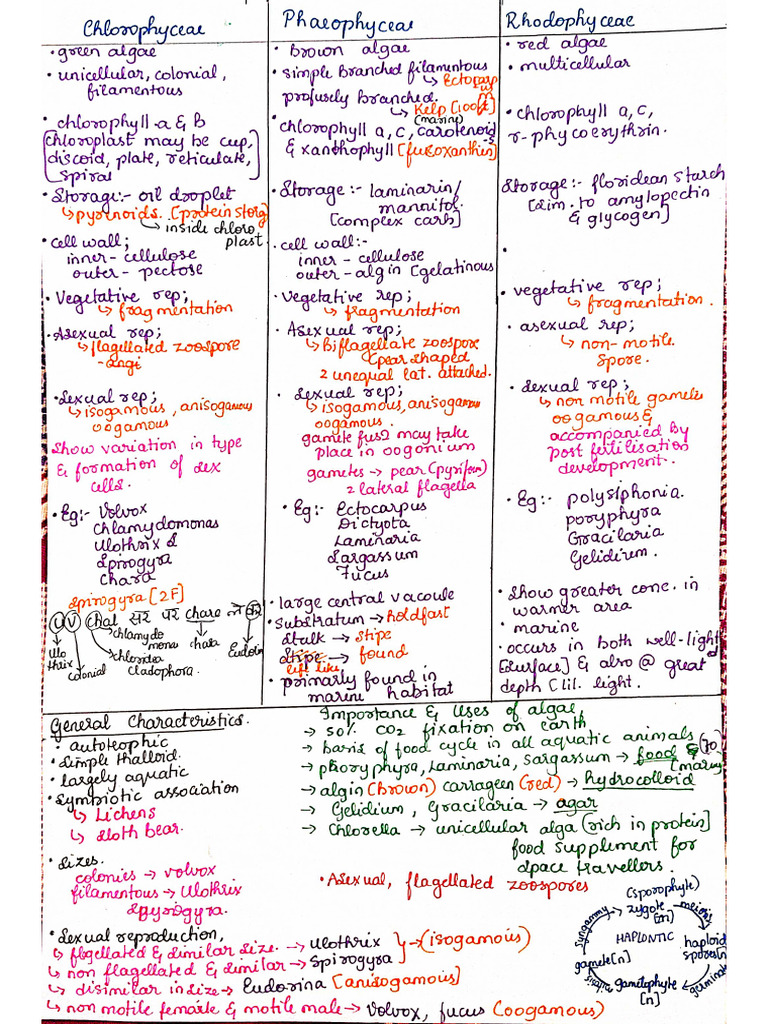 Chlorophyceae
• green algae
• unicellular, colonial,
filamentous
• chlorophyll a & B
[chloroplast may be cup,
discoid, plate, reticulate,
spiral]
• Storage:- oil droplet
↳ pyrinoids. [protein storg]
↳ inside chloro
plast
• cell wall;
inner - cellulose
outer - pectose
• Vegetative rep;
↳ fragmentation
• Asexual rep;
↳ flagellated zoospore
- angi
• Sexual rep;
↳ isogamous, anisogamous
oogamous
Show variation in type
& formation of sex
cells.
• Eg:- Volvox
Chlamydomonas
Ulothrix &
Spirogyra
Chara
Spirogyra [2F]
U V Chal सर पर chare ने
Ulo
thrix
colonial
chlamydo
monas
chlorella
cladophora.
chara
Eudorin
Phaeophyceae
• Brown algae
• simple Branched filamentous
↳ Ectocarpus
profusely branched.
↳ Kelp [100ft]
(marine)
• chlorophyll a, c, carotenoids
& xanthophyll [fucoxanthin]
• Storage :- laminarin/
mannitol.
[complex carb]
• cell wall:-
inner - cellulose
outer - algin [gelatinous
• Vegetative rep;
↳ fragmentation
• Asexual rep;
↳ Biflagellate zoospore
[pear shaped
2 unequal lat. attached.
• Sexual rep;
↳ isogamous, anisogamous
oogamous.
gamete fus2 may take
place in oogonium
gametes → pear (pyriform)
2 lateral flagella
• Eg:- Ectocarpus
Dictyota
Laminaria
Sargassum
Fucus
• large central vacoule
• substratum → holdfast
Stalk → stipe
Stipe → found
leif like
• primarily found in
marine habitat
Rhodophyceae
• red algae
• multicellular
• chlorophyll a, c,
r-phycoerythrin.
Storage:- floridean starch
[sim. to amylopectin
& glycogen]
•
• vegetative rep;
↳ fragmentation.
• asexual rep;
↳ non-motile
spore.
• Sexual rep;
↳ non motile gametes
oogamous &
accompanied by
post fertilisation
development.
• Eg:- polysiphonia.
poryphyra
Gracilaria
Gelidium.
• Show greater conc. in
warmer area
• marine
• occurs in both well-light
[surface] & also @ great
depth [lil. light.
General Characteristics.
• autoteophic
• Simple thalloid.
• largely aquatic
• Symbiotic association
↳ Lichens
↳ sloth bear.
• Sizes.
colonies → volvox
filamentous → Ulothrix
Spyrogyra.
Importance & Uses of algae,
→ 50% CO2 fixation on earth
→ basis of food cycle in all aquatic animals
→ phoryphyra, Laminaria, Sargassum → food & (70
(marine)
→ algin (brown) carrageen (red) → hydrocolloid
→ Gelidium, Gracilaria → agar
→ Chlorella → unicellular alga (rich in protein]
food supplement for
space travellers.
• Asexual, flagellated zoospores
• Sexual reproduction,
↳ flagellated & similar size. → Ulothrix
↳ non flagellated & similar → Spirogyra
} → (isogamous)
↳ disimilar in size → Eudorina [anisogamous]
↳ non motile female & motile male → Volvox, fucus (oogamous)
(sporophyte)
zygote
meiosis
haploid
spores[n]
germinate
gametophyte
[n]
mitosis
gamete[n]
syngammy
HAPLONTIC